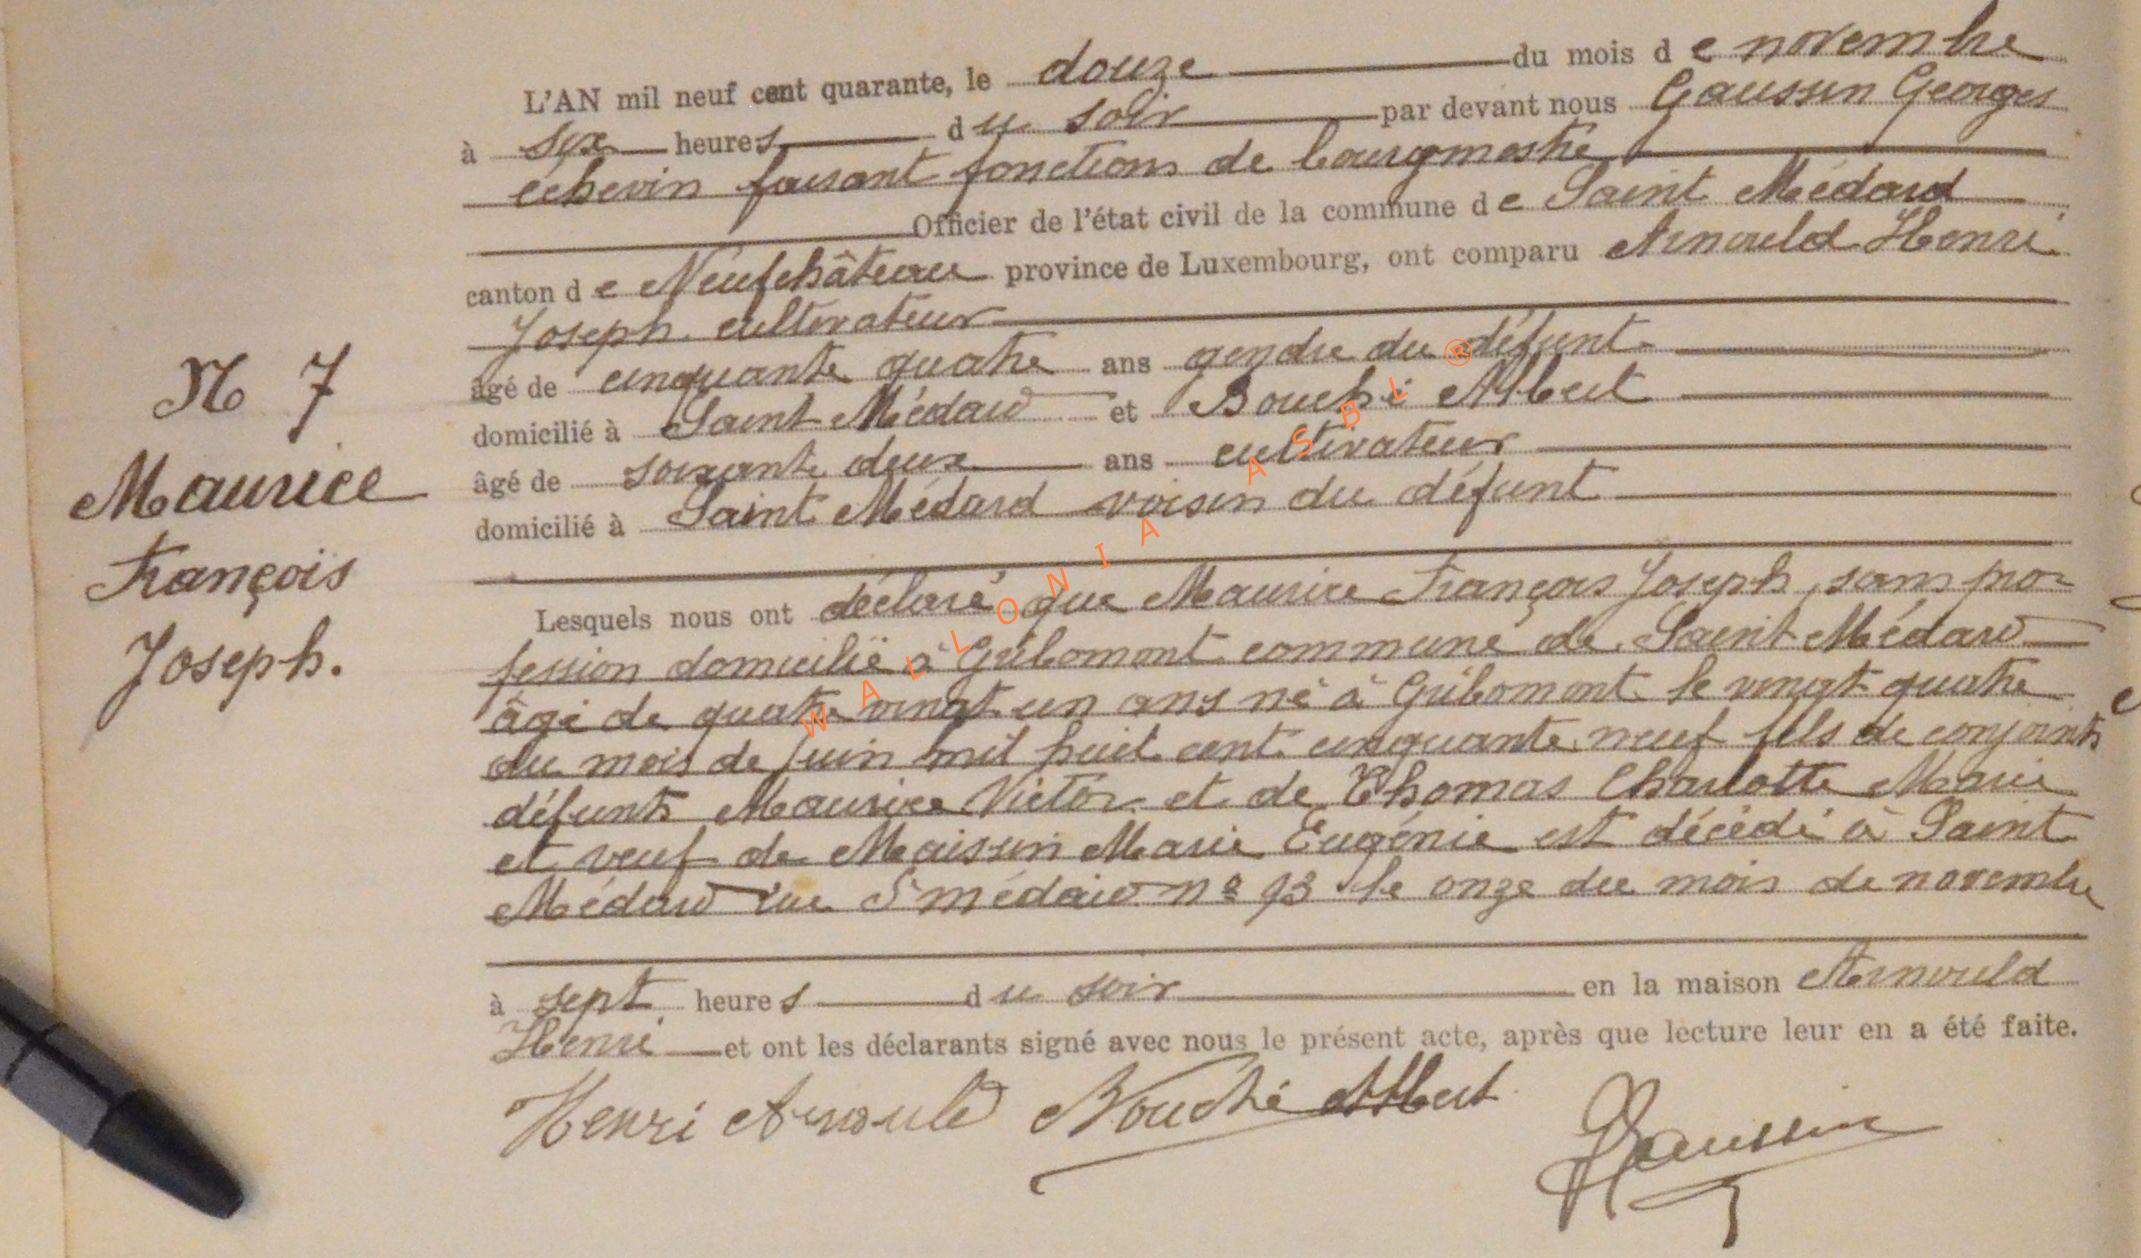 L'AN mil neuf cent quarante, le douze du mois de novembre
à six heures du soir par devant nous Gaussin Georges
échevin faisant fonctions de bourgmestre
Officier de l'état civil de la commune de Saint Médard
canton de Neufchâteau province de Luxembourg, ont comparu Arnould Henri
Joseph. cultivateur
âgé de cinquante quatre ans gendre du défunt
domicilié à Saint Médard et Bouché Albert
âgé de soixante deux ans cultivateur
domicilié à Saint Médard voisin du défunt
N 7
Maurice
François
Joseph.
Lesquels nous ont déclaré que Maurice François Joseph, sans pro-
fession domicilié à Gribomont commune de Saint Médard
âgé de quatre vingt un ans né à Gribomont le vingt quatre
du mois de juin mil huit cent cinquante neuf fils de conjoints
défunts Maurice Victor et de Thomas Charlotte Marie
et veuf de Maissin Marie Eugénie est décédé à Saint
Médard rue St médard nº 93 le onze du mois de novembre
à sept heures du soir en la maison Arnould
Henri et ont les déclarants signé avec nous le présent acte, après que lecture leur en a été faite.
Henri Arnould Bouché Albert Gaussin
WALLONIA ASBL ®